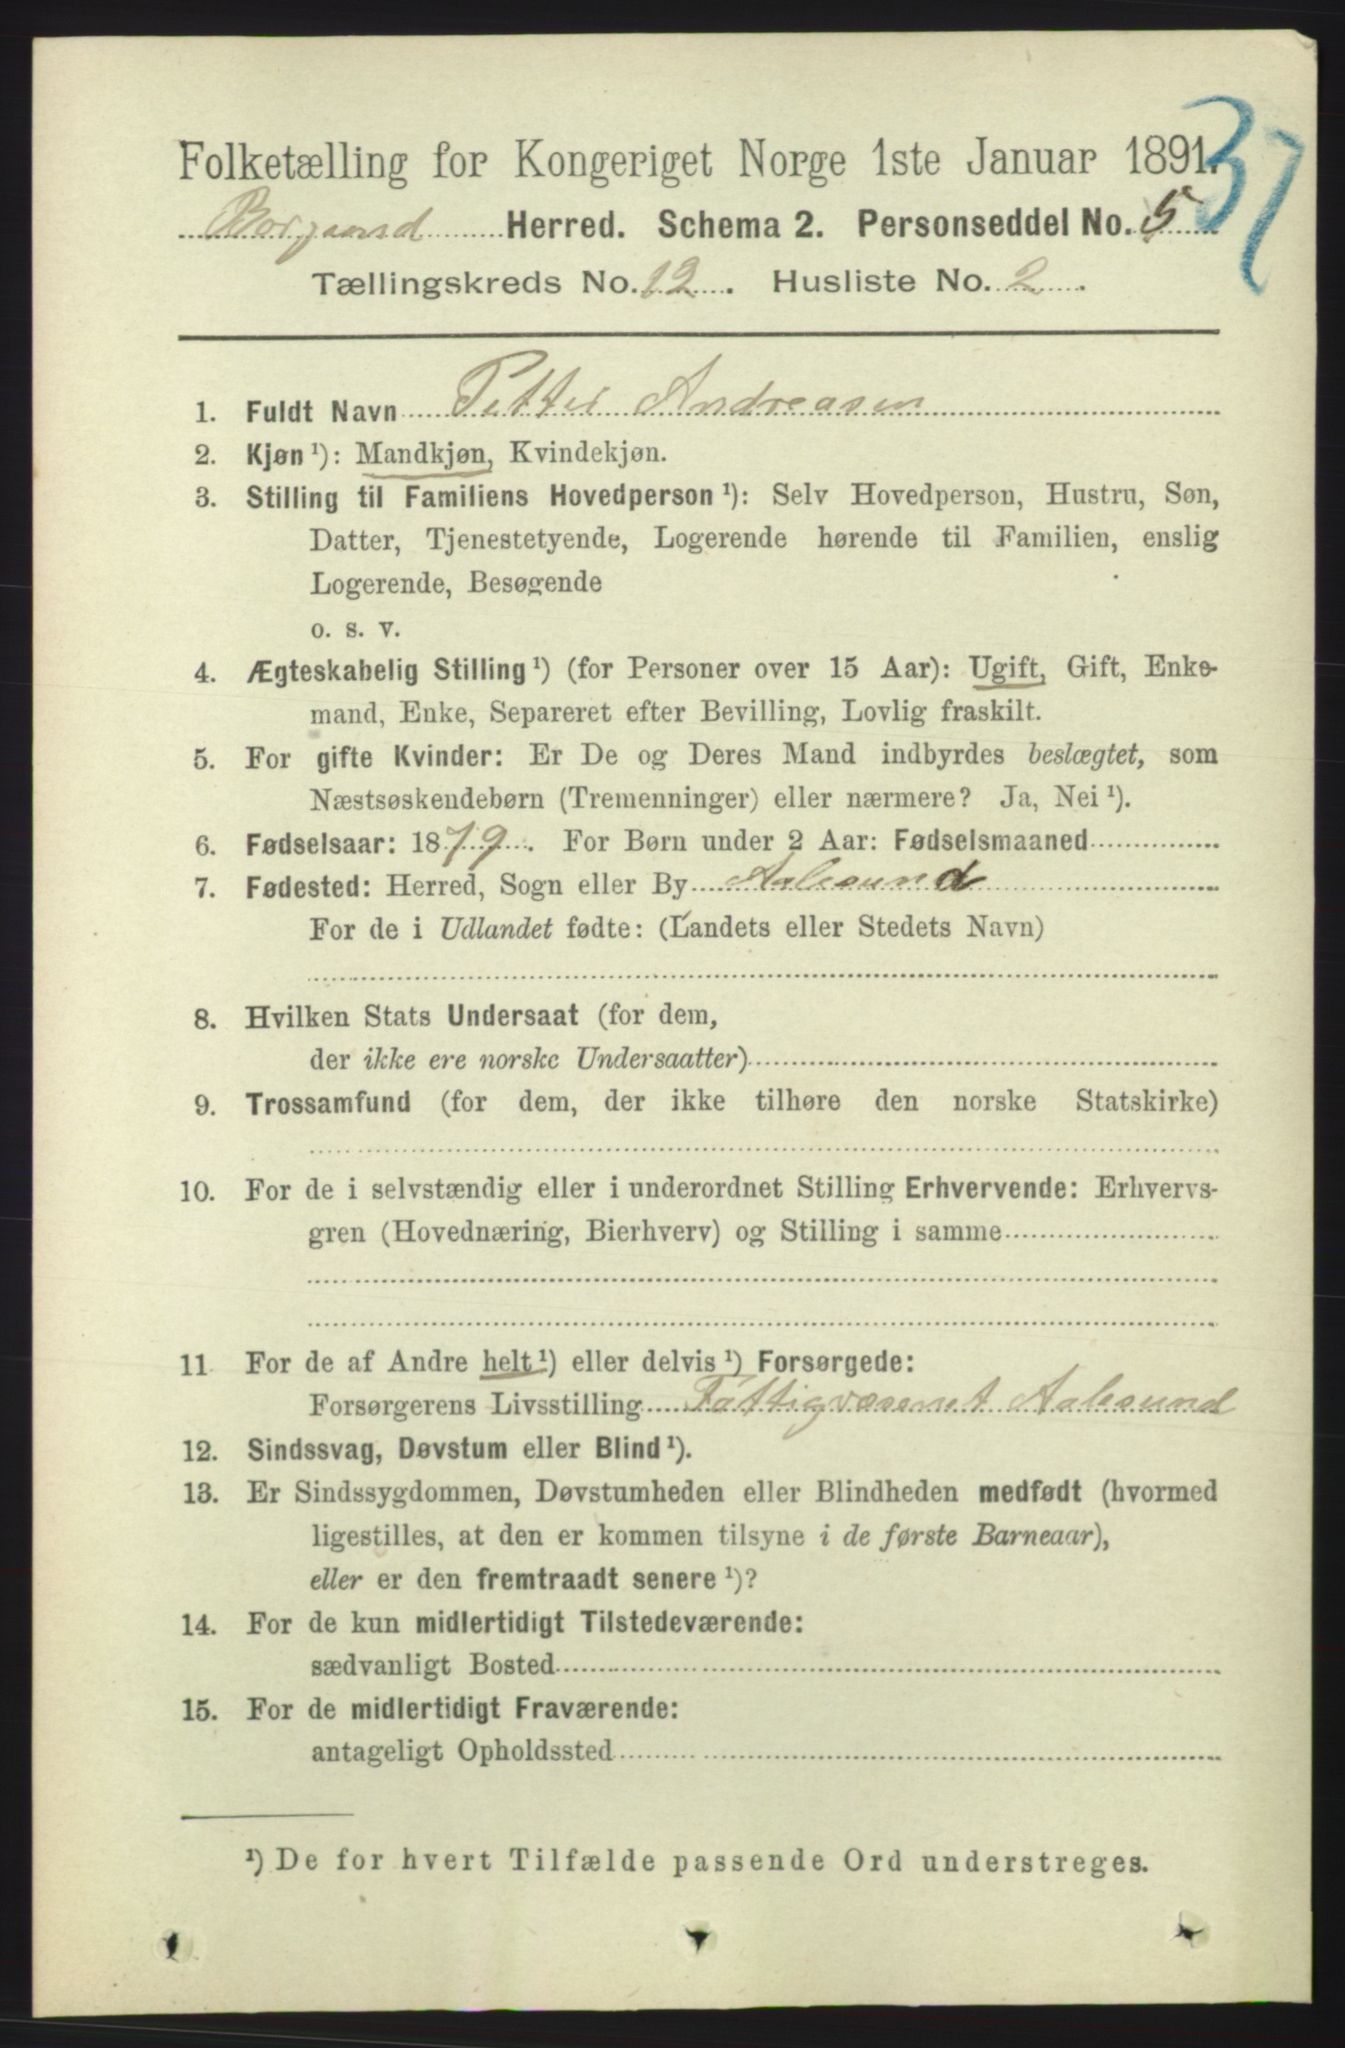 37
Folketælling for Kongeriget Norge 1ste Januar 1891.
Borgund Herred. Schema 2. Personseddel No. 5
Tællingskreds No. 12. Husliste No. 2.
1. Fuldt Navn Petter Andreasen
2. Kjøn ¹): Mandkjøn, Kvindekjøn.
3. Stilling til Familiens Hovedperson ¹): Selv Hovedperson, Hustru, Søn,
Datter, Tjenestetyende, Logerende hørende til Familien, enslig
Logerende, Besøgende
o. s. v.
4. Ægteskabelig Stilling ¹) (for Personer over 15 Aar): Ugift, Gift, Enke-
mand, Enke, Separeret efter Bevilling, Lovlig fraskilt.
5. For gifte Kvinder: Er De og Deres Mand indbyrdes beslægtet, som
Næstsøskendebørn (Tremenninger) eller nærmere? Ja, Nei ¹).
6. Fødselsaar: 1879. For Børn under 2 Aar: Fødselsmaaned
7. Fødested: Herred, Sogn eller By Aalesund
For de i Udlandet fødte: (Landets eller Stedets Navn)
8. Hvilken Stats Undersaat (for dem,
der ikke ere norske Undersaatter)
9. Trossamfund (for dem, der ikke tilhøre den norske Statskirke)
10. For de i selvstændig eller i underordnet Stilling Erhvervende: Erhvervs-
gren (Hovednæring, Bierhverv) og Stilling i samme
11 For de af Andre helt ¹) eller delvis ¹) Forsørgede:
Forsørgerens Livsstilling Fattigvæsenet Aalesund
12. Sindssvag, Døvstum eller Blind ¹).
13. Er Sindssygdommen, Døvstumheden eller Blindheden medfødt (hvormed
ligestilles, at den er kommen tilsyne i de første Barneaar),
eller er den fremtraadt senere ¹)?
14. For de kun midlertidigt Tilstedeværende:
sædvanligt Bosted
15. For de midlertidigt Fraværende:
antageligt Opholdssted
¹) De for hvert Tilfælde passende Ord understreges.